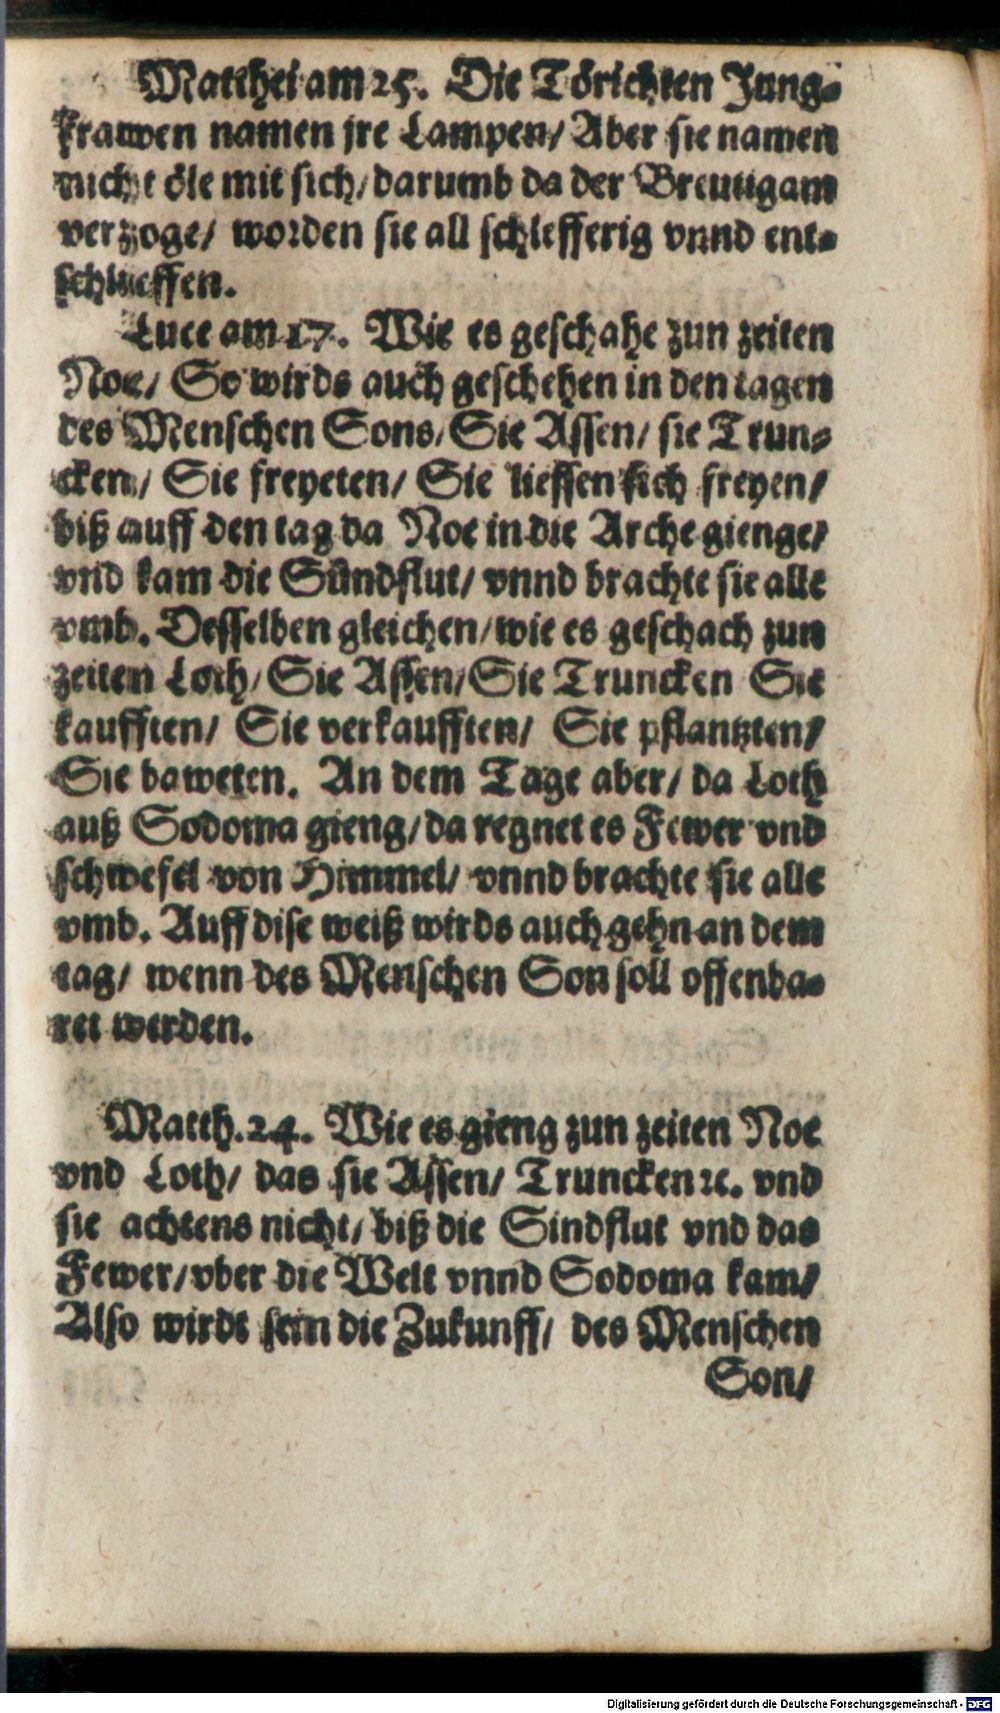 Matthei am 25. Die Törichten Jung-
frawen namen jre Lampen/ Aber sie namen
nicht öle mit sich/ darumb da der Breutigam
verzoge/ worden sie all schlefferig vnnd ent-
schlieffen.
Luce am 17. Wie es geschahe zun zeiten
Noe/ So wirds auch geschehen in den tagen
des Menschen Sons/ Sie Assen/ sie Trun-
cken/ Sie freyeten/ Sie liessen sich freyen/
biß auff den tag da Noe in die Arche gienge/
vnd kam die Sündflut/ vnnd brachte sie alle
vmb. Desselben gleichen/ wie es geschach zun
zeiten Loth/ Sie Assen/ Sie Truncken Sie
kaufften/ Sie verkaufften/ Sie pflantzten/
Sie baweten. An dem Tage aber/ da Loth
auß Sodoma gieng/ da regnet es Fewer vnd
schwefel von Himmel/ vnnd brachte sie alle
vmb. Auff dise weiß wirds auch gehn an dem
tag/ wenn des Menschen Son soll offenba-
ret werden.
Matth. 24. Wie es gieng zun zeiten Noe
vnd Loth/ das sie Assen/ Truncken ꝛc. vnd
sie achtens nicht/ biß die Sindflut vnd das
Fewer/ vber die Welt vnnd Sodoma kam/
Also wirdt sein die Zukunff/ des Menschen
Son/
Digitalisierung gefördert durch die Deutsche Forschungsgemeinschaft - DFG